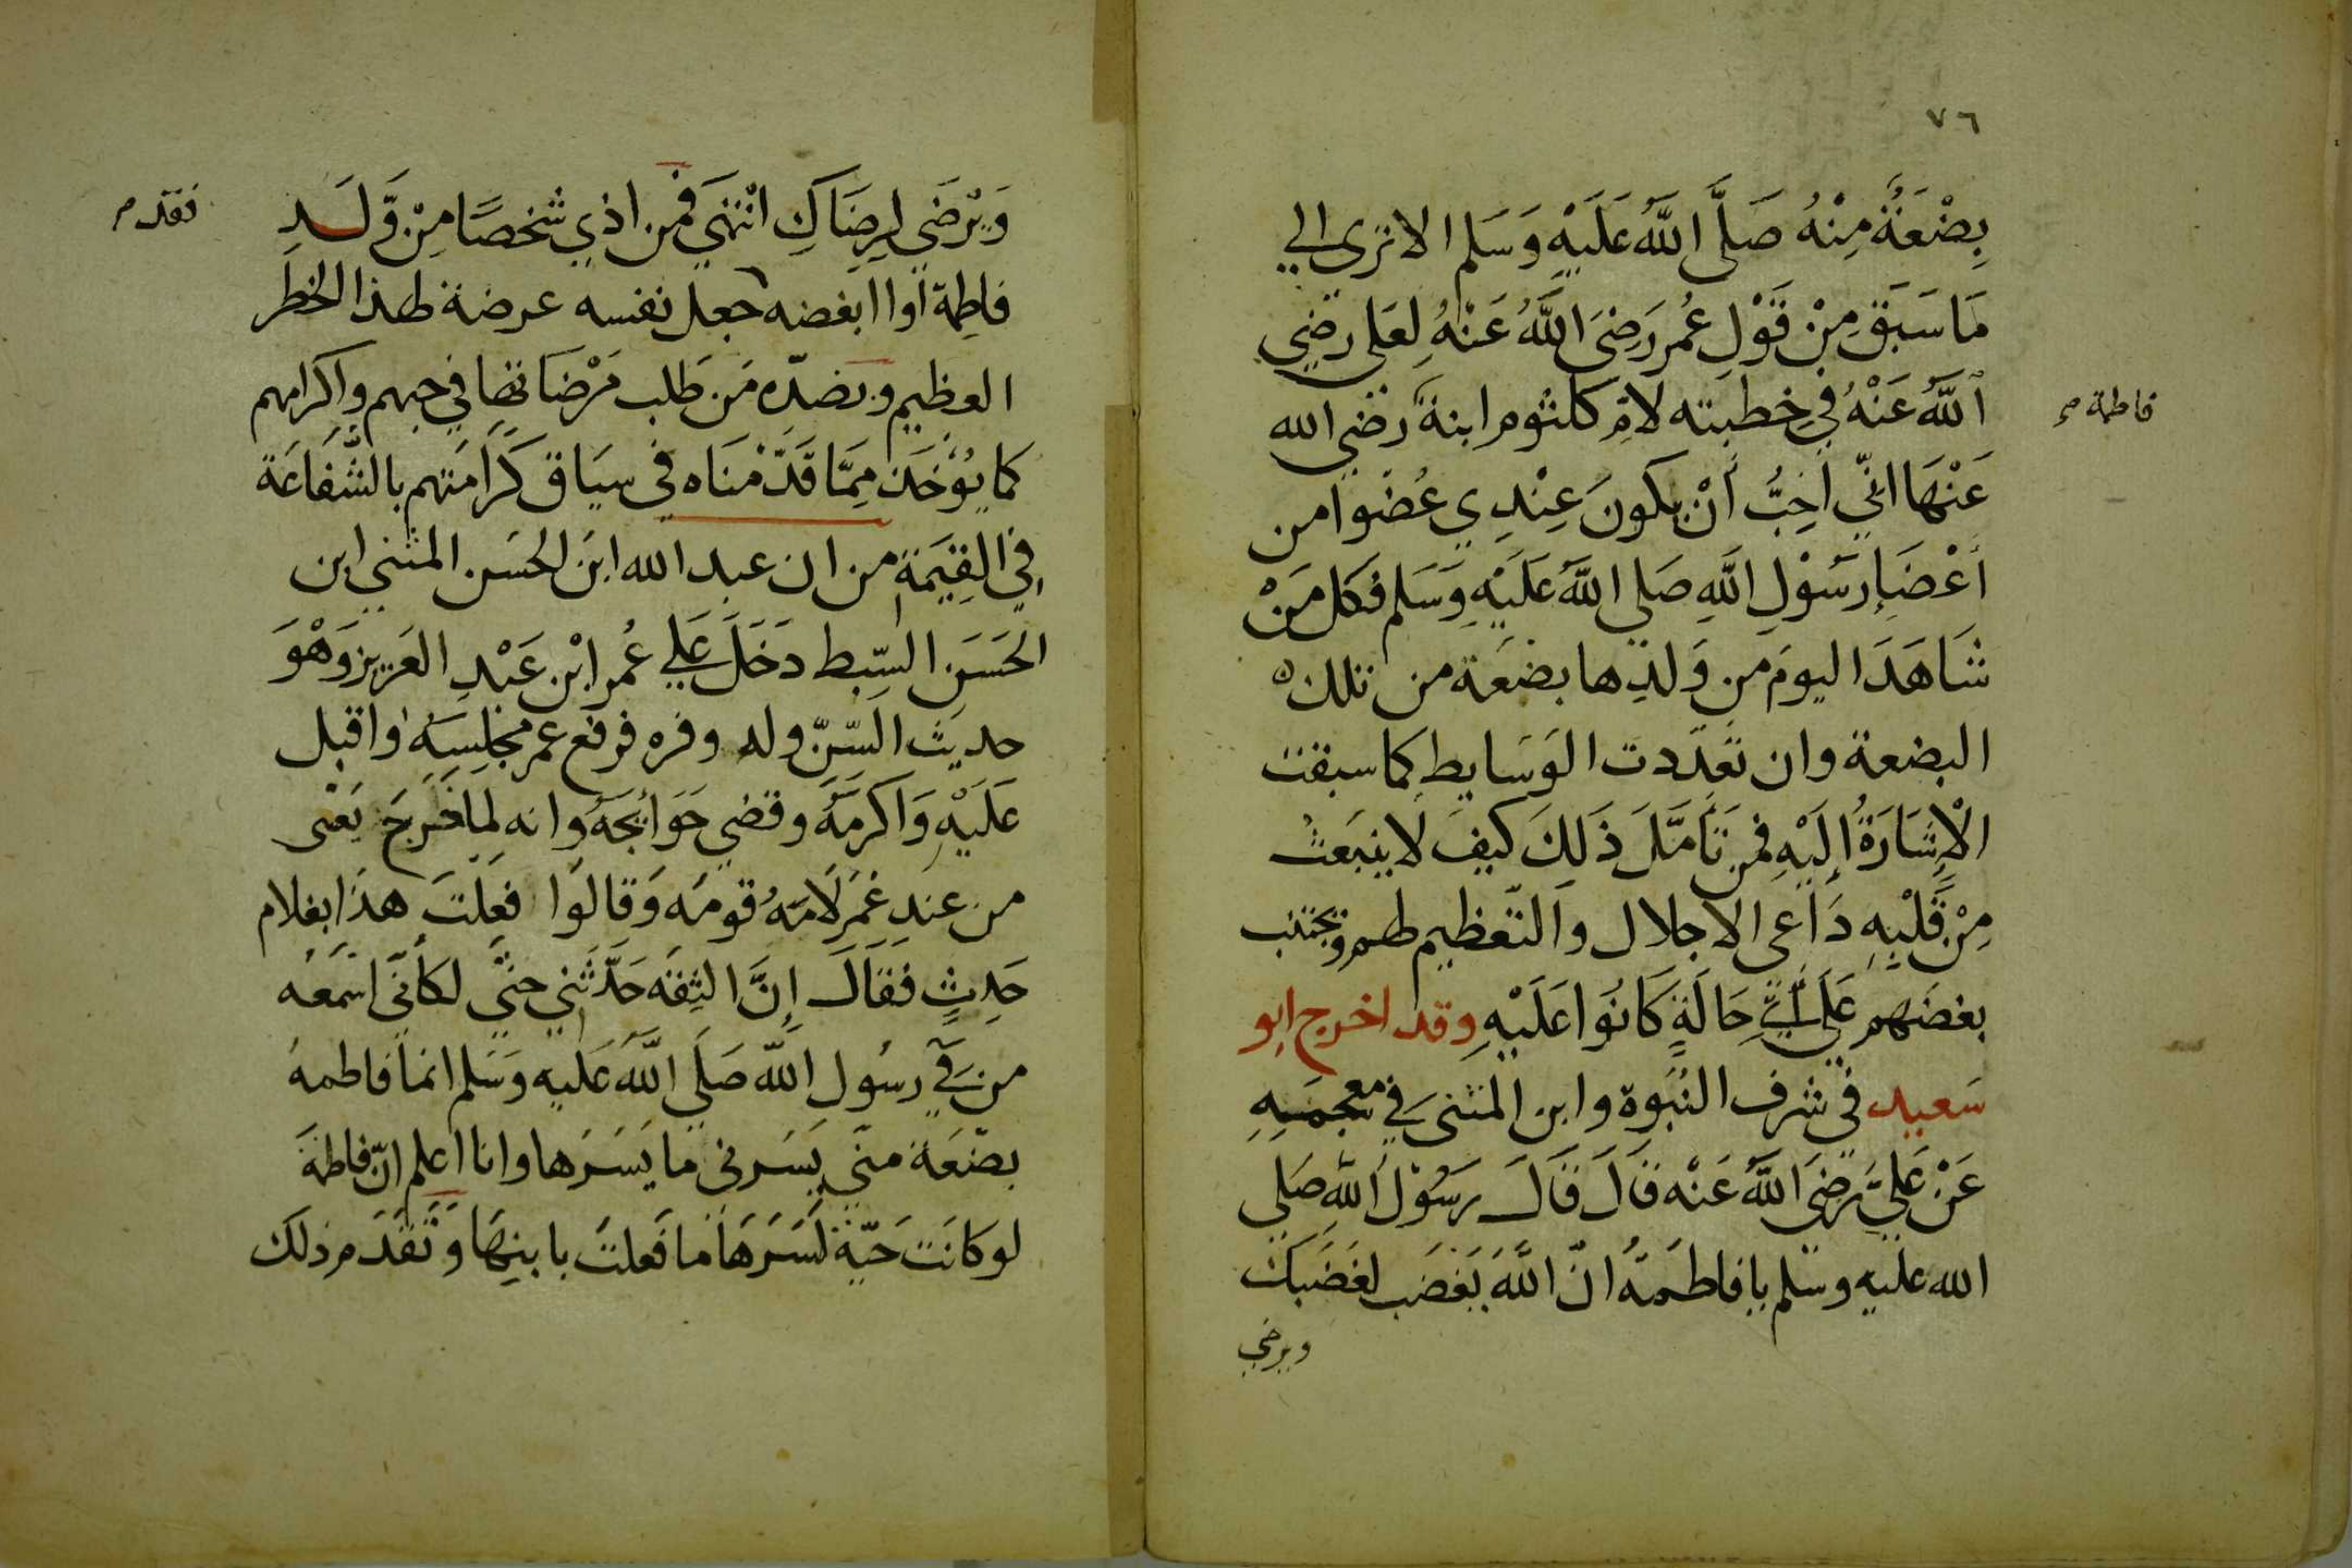 ٧٦
بِضْعَةٌ مِنْهُ صَلَّى اللَّهُ عَلَيْهِ وَسَلم الا ترى الي
مَا سَبَقَ مِنْ قَوْلِ عُمر رَضِىَ اللَّهُ عَنْهُ لِعَلى رضي
اللَّهُ عَنْهُ فِي خِطبته لامِّ كلثوم ابنة رضي الله
فاطمة صح
عَنْهَا انّي احِبُّ أنْ يكونَ عِنْدِي عُضوا من
أعْضَاءِ رَسُوْلِ اللَّهِ صَلي اللَّهُ عَلَيْهِ وَسَلم فكل مَنْ
شَاهَدَ اليومَ من وَلدِها بضعَة من تلك
البضعة وان تعدّدت الوَسايط كما سبقت
الْاِشَارَةُ إِلَيْهِ فمن تَأمَّلَ ذَلِكَ كيفَ لا ينبَعثُ
مِنْ قَلْبِهِ دَاعى الاجلال والتّعظيم لهم وتجتنب
بغضَهم عَلى أيّ حَالَةٍ كَانُوا عَلَيْهِ وقد اخرج ابو
سَعيد في شرف النُبوة وابن المثنى في معجمَهِ
عَنْ عَلِيّ رضِيَ اللَّهُ عَنْه قَالَ قَالَ رَسُوْلُ اللهِ صَلي
الله عليه وسلم يا فاطمَةُ انّ اللَّهَ يَغضَب لغضَبك
ويرضي
وَيَرْضَى لِرِضَاكِ انْتهَي فمن اذي شخصًا مِنْ وَّلَدِ
فاطِمة أو ابغضه جعل نفسه عرضة لهذا الخطر
فقد م
العظيم وبضدّه مَن طَلب مَرْضَاتها في حبهم واكرامهم
كما يُؤْخَذ مِمَّا قَدَّمْنَاه في سيَاق كَرَامَتهم بالشَّفَاعَة
في القِيَمَة من ان عبد الله ابن الحُسَن المثني ابن
الحَسَن السِّبط دَخَلَ عَلي عُمر ابْن عَبْدِ العَزيز وَهْوَ
حديث السّنّ وله وفره فرفع عمر مجلِسَهُ واقبل
عَلَيْهِ وَاَكرمَهُ وقضي حَوَائِجَهُ وانه لما خَرجَ يَعْنى
من عندِ عُمَر لَامَهُ قومُه وَقالوا فعلتَ هذا بغلام
حَدِثٍ فقالَ إنَّ الثِقَه حَدَّثني حتَّي لكأنّي اسْمَعُه
من في رسُول اللَّه صَلَي اللَّهُ عَليه وَسَلم انما فاطمهُ
بضعَة منّي يَسَرنى ما يَسُرّها وانا اعلم انّ فاطمَةَ
لو كانَت حَيّة لَسَرَّهَا ما فعلتُ بابنِهَا وَتَقَدَم ذلك